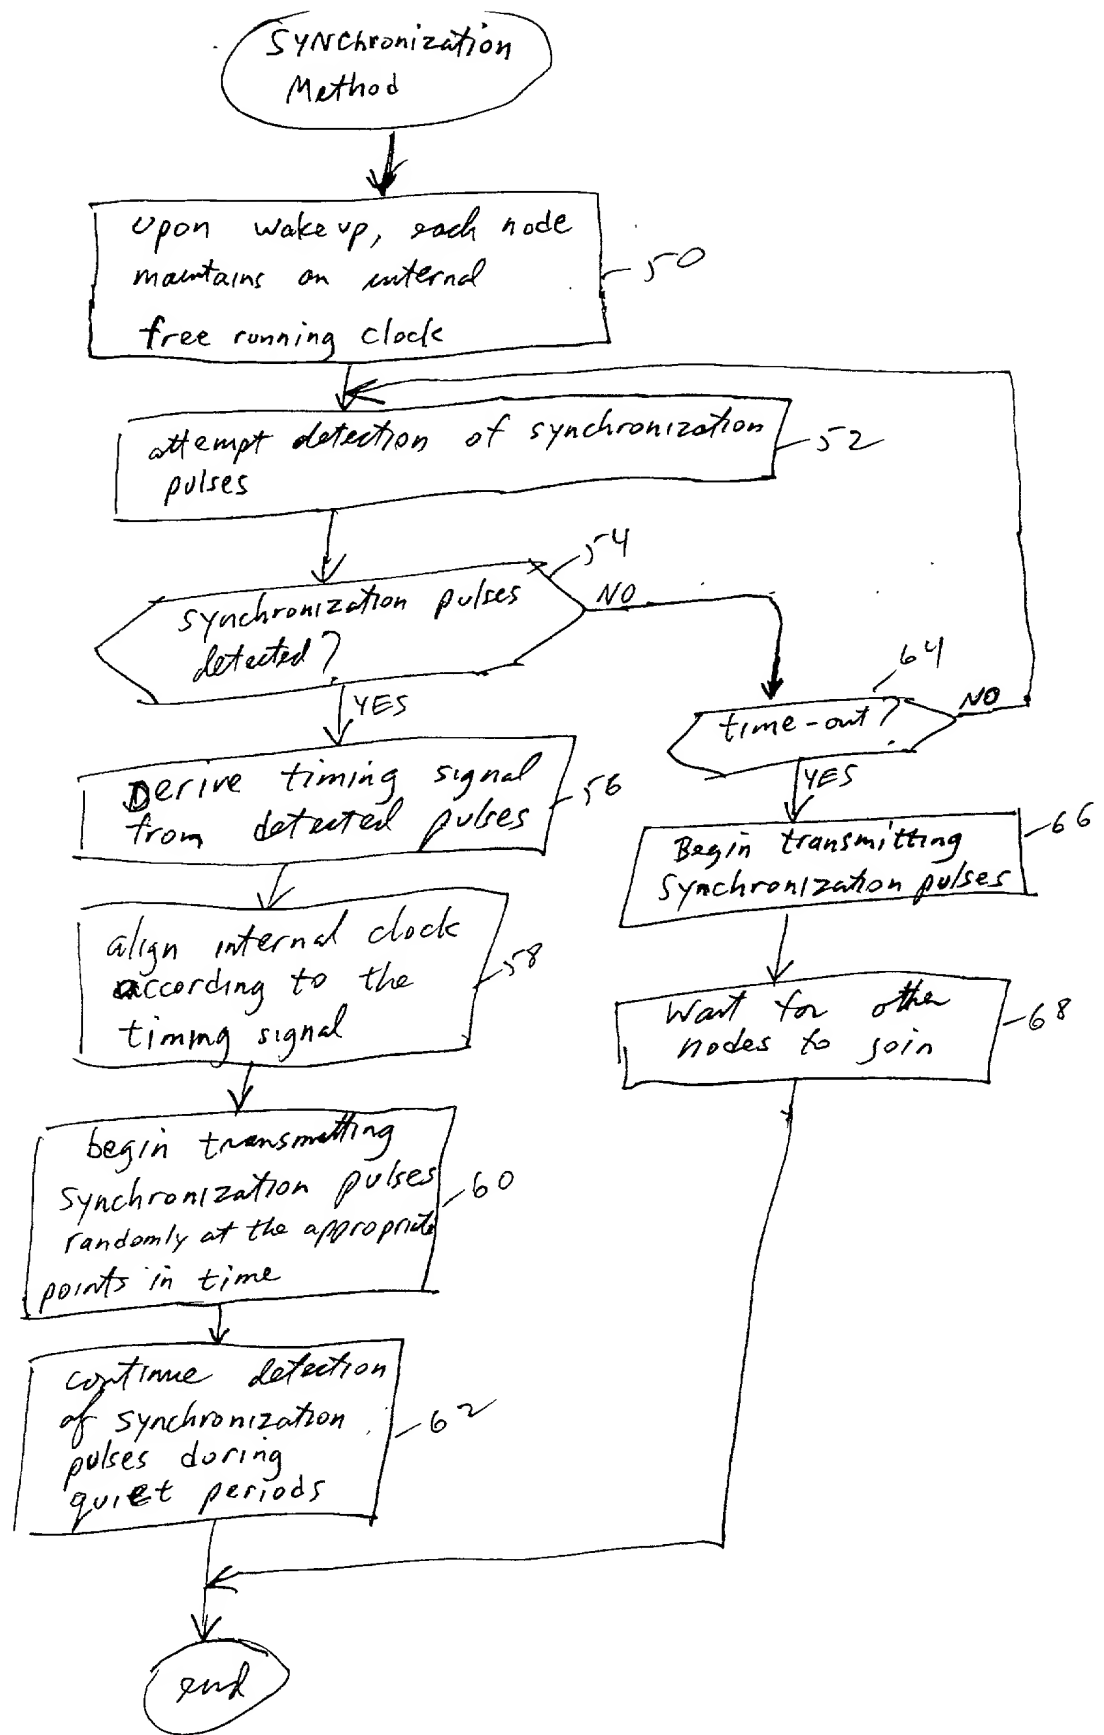 Synchronization
Method
Upon wakeup, each node
maintains an internal
free running clock
50
attempt detection of synchronization
pulses
52
54
synchronization pulses
detected?
NO
YES
64
time-out?
NO
YES
Derive timing signal
from detected pulses
56
Begin transmitting
synchronization pulses
66
align internal clock
according to the
timing signal
58
Wait for other
nodes to join
68
begin transmitting
synchronization pulses
randomly at the appropriate
points in time
60
continue detection
of synchronization
pulses during
quiet periods
62
end